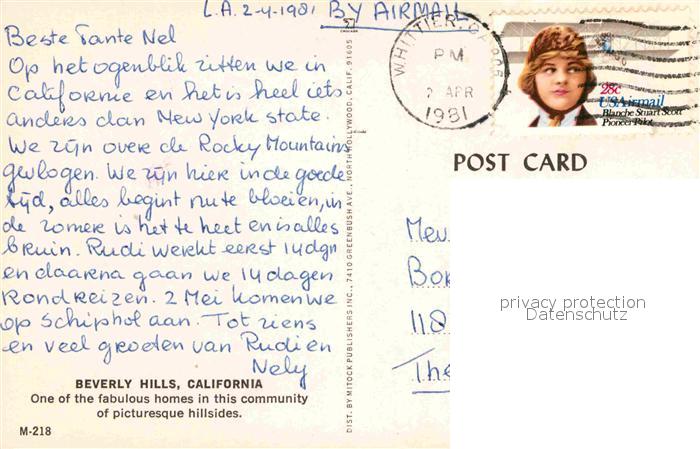 L.A. 2-4-1981 BY AIRMAIL
Beste Tante Nel
Op het ogenblik zitten we in
Californie en het is heel iets
anders dan New York state.
We zijn over de Rocky Mountains
gevlogen. We zijn hier in de goede
tijd, alles begint nu te bloeien, in
de zomer is het te heet en is alles
bruin. Rudi werkt eerst 14 dgn
en daarna gaan we 14 dagen
Rondreizen. 2 Mei komen we
op Schiphol aan. Tot ziens
en veel groeten van Rudi en
Nely
BEVERLY HILLS, CALIFORNIA
One of the fabulous homes in this community
of picturesque hillsides.
M-218
DIST. BY MITOCK PUBLISHERS INC., 7410 GREENBUSH AVE., NORTH HOLLYWOOD, CALIF. 91605
WHITTIER, CA
PM
2 APR
1981
28c
USAirmail
Blanche Stuart Scott
Pioneer Pilot
POST CARD
Mev
Bo
118
The
privacy protection
Datenschutz